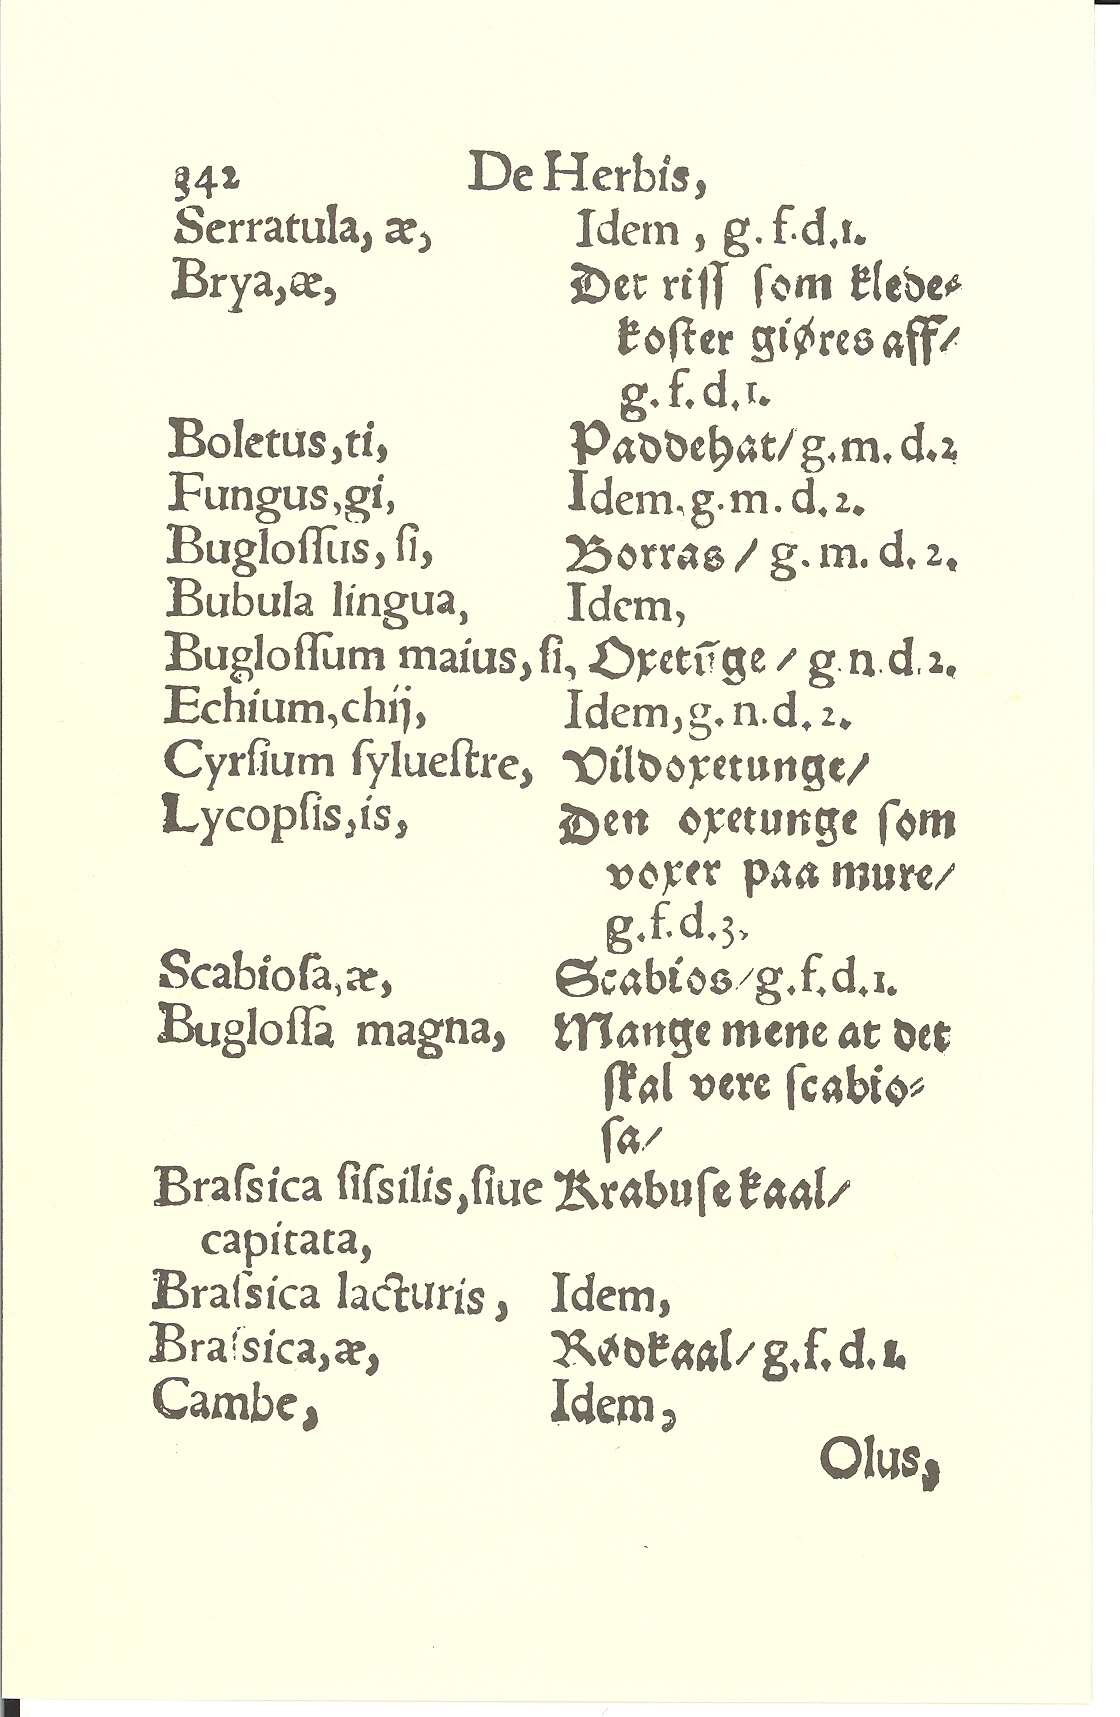 342 De Herbis,
Serratula, æ, Idem, g. f. d. 1.
Brya, æ, Det riſſ ſom klede⸗
koſter giøres aff/
g. f. d. 1.
Boletus, ti, Paddehat/ g. m. d. 2
Fungus, gi, Idem, g. m. d. 2.
Bugloſſus, ſi, Borras / g. m. d. 2.
Bubula lingua, Idem,
Bugloſſum maius, ſi, Oxetūge / g. n. d. 2.
Echium, chij, Idem, g. n. d. 2.
Cyrſium ſylueſtre, Vildoxetunge/
Lycopſis, is, Den oxetunge ſom
voxer paa mure/
g. f. d. 3.
Scabioſa, æ, Scabios/ g. f. d. 1.
Bugloſſa magna, Mange mene at det
ſkal vere ſcabio⸗
ſa/
Braſsica ſiſsilis, ſiue Krabuſekaal/
capitata,
Braſsica lacturis, Idem,
Braſsica, æ, Rødkaal/ g. f. d. 1.
Cambe, Idem,
Olus,